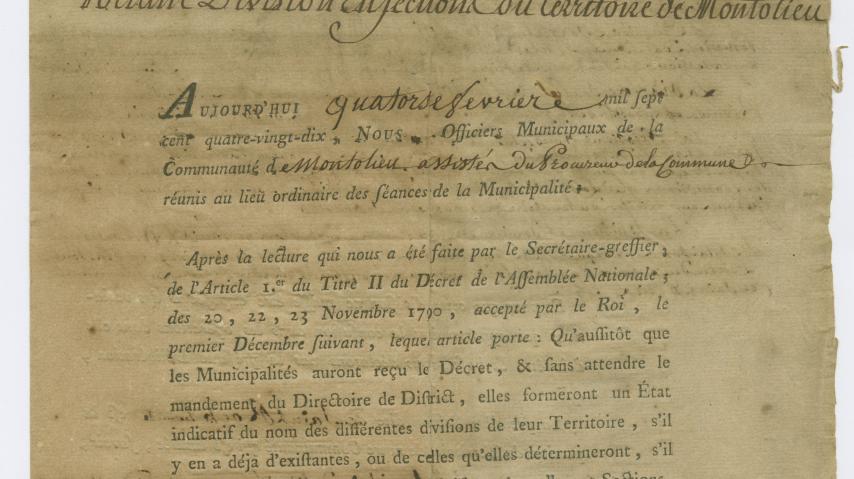 Division en sections du territoire de Montolieu
AUJOURD'HUI quatorse fevrier mil ſept
cent quatre-vingt-dix, NOUS, Officiers Municipaux de la
Communauté de Montolieu assistés du Procureur de la Commune
réunis au lieu ordinaire des ſéances de la Municipalité;
Après la lecture qui nous a été faite par le Secrétaire-greffier,
de l'Article 1.er du Titre II du Décret de l'Aſſemblée Nationale;
des 20, 22, 23 Novembre 1790, accepté par le Roi, le
premier Décembre ſuivant, lequel article porte : Qu'auſſitôt que
les Municipalités auront reçu le Décret, & ſans attendre le
mandement du Directoire de Diſtrict, elles formeront un État
indicatif du nom des différentes diviſions de leur Territoire, s'il
y en a déja d'exiſtantes, ou de celles qu'elles détermineront, s'il